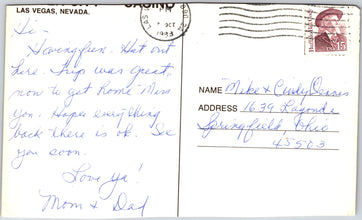 CASINO
LAS VEGAS, NEVADA.
Hi -
Having fun. Hot out
here. Trip was great,
now to get home. Miss
you. Hope everything
back there is ok. See
you soon.
Love ya!
Mom & Dad
15
NAME Mike & Cindy
ADDRESS 1639 Lagonda
Springfield, Ohio
45503